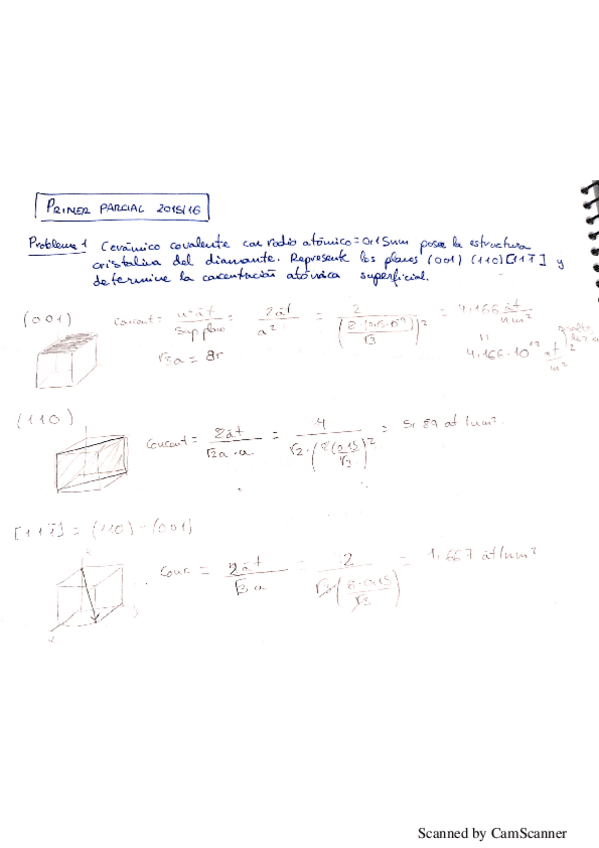 PRIMER PARCIAL 2015/16
Problema 1 Cerámico covalente con radio atómico = 0.15nm posee la estructura
cristalina del diamante. Represente los planos (001) (110) [11̄1̄] y
determine la concentración atómica superficial.
(001) Concent = nº át / sup plano = 2át / a² = 2 / (8(0.15·10⁻⁹) / √3)² = 4.166 át / nm²
√3a = 8r
4.166·10
(110)
Concent = 2át / √2a·a = 4 / √2·(8(0.15) / √3)² = 5.89 at/nm²
[111̄] = (110) - (001)
Conc = 2át / √3a = 2 / √3(8·0.15 / √3) = 1.667 át/nm²
Scanned by CamScanner